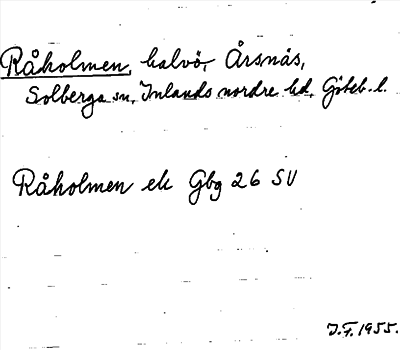 Råholmen, halvö, Årsnäs,
Solberga sn, Inlands nordre hd, Göteb. l.
Råholmen ek Gbg 26 SV
J.F. 1955.